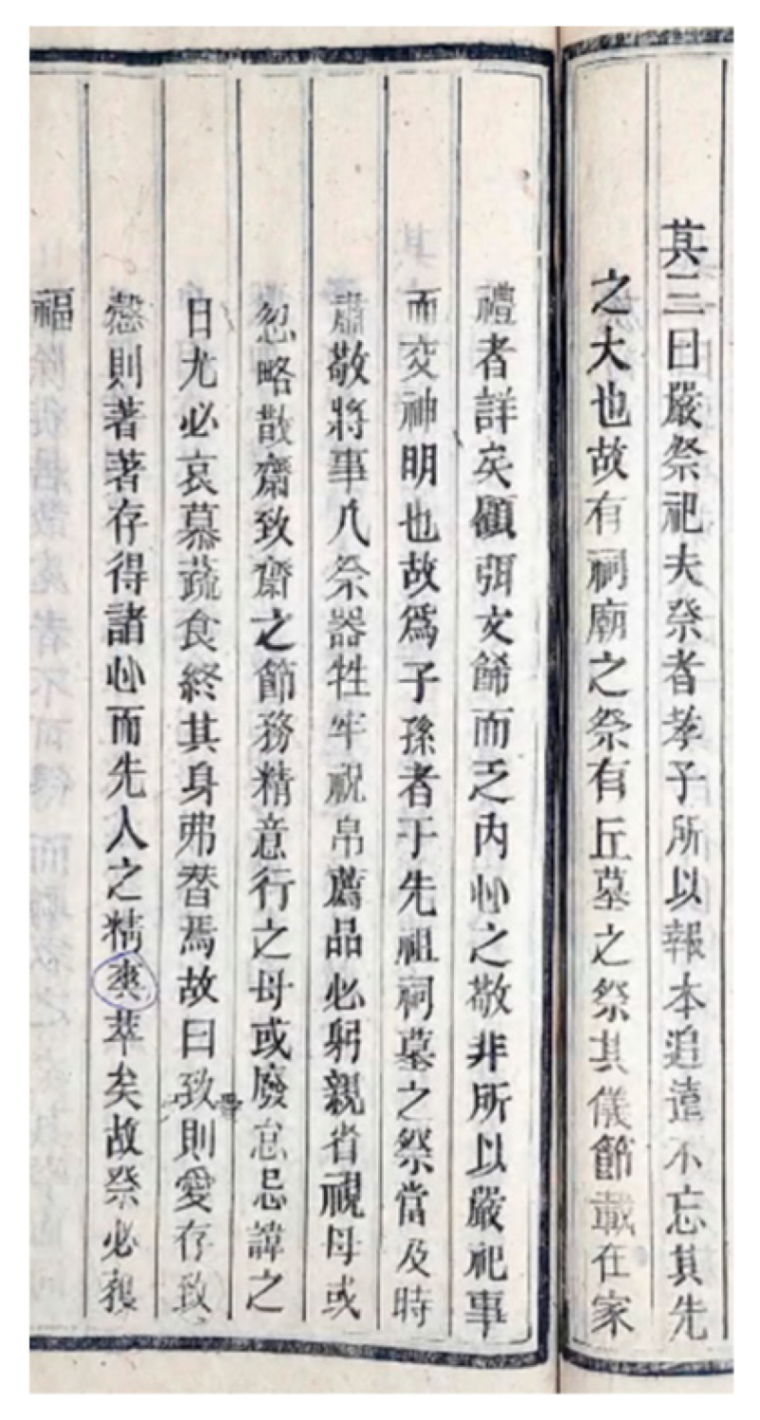 其三曰嚴祭祀夫祭者孝子所以報本追遠不忘其先
之大也故有祠廟之祭有丘墓之祭其儀節載在家
禮者詳矣顧弭文餙而乏内心之敬非所以嚴祀事
而交神明也故爲子孫者于先祖祠墓之祭當及時
肅敬將事凡祭器牲牢祝帛薦品必躬親省視毋或
忽略散齋致齋之節務精意行之毋或廢怠忌諱之
日尤必哀慕蔬食終其身弗替焉故曰致則愛存致
慤則著著存得諸心而先人之精爽萃矣故祭必獲
福